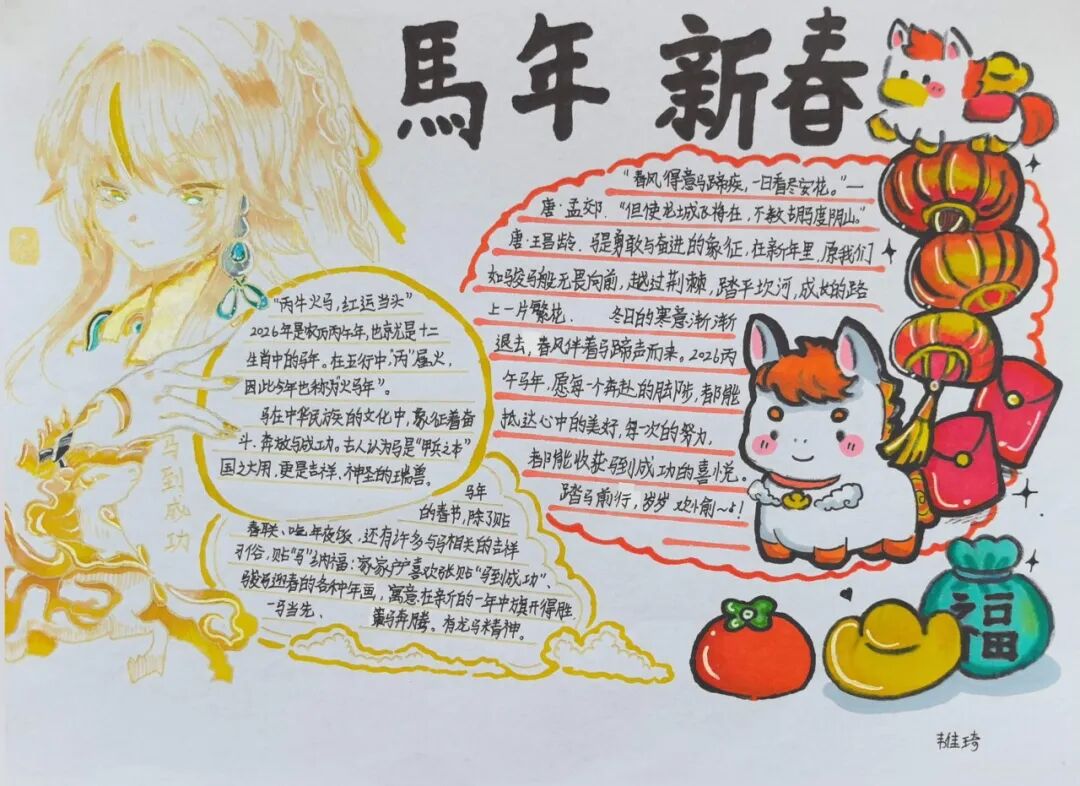 馬年 新春
“春风得意马蹄疾，一日看尽安花。”—
唐·孟郊．“但使龙城飞将在，不教胡马度阴山。”
唐·王昌龄．马是勇敢与奋进的象征，在新年里，原我们
如骏马般无畏向前，越过荆棘，踏平坎河，成长的路
上一片繁花． 冬日的寒意渐渐
退去，春风伴着马蹄声而来。2026丙
午马年，愿每一个奔赴的脚步，都能
抵达心中的美好，每一次的努力，
都能收获马到成功的喜悦。
踏马前行，岁岁欢愉~！
“丙午火马，红运当头”
2026年是农历丙午年，也就是十二
生肖中的马年。在五行中，“丙”属火，
因此今年也称为“火马年”。
马在中华民族的文化中，象征着奋
斗、奔放与成功。古人认为马是“甲兵之本”
国之大用，更是吉祥、神圣的瑞兽。
马到成功
马年
的春节，除了贴
春联、吃年夜饭，还有许多与马相关的吉祥
习俗，贴“马”纳福：家家户户喜欢张贴“马到成功”、
骏马迎春的各种年画，寓意在新的一年中旗开得胜
一马当先、 策马奔腾。有龙马精神。
福